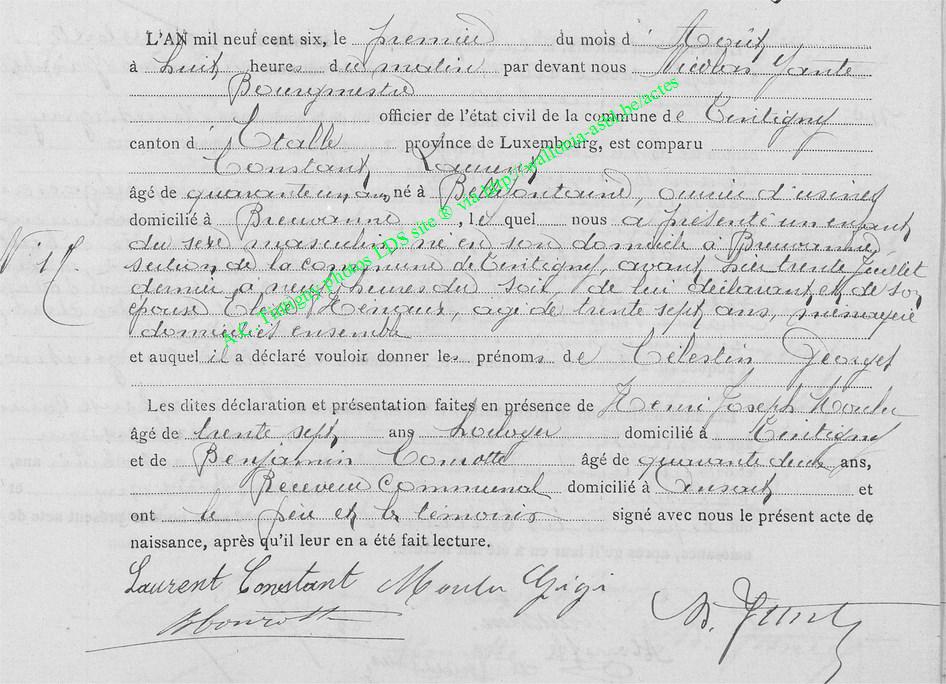 L'AN mil neuf cent six, le premier du mois d' Août
à huit heures du matin par devant nous Nicolas
Bourgmestre
officier de l'état civil de la commune de Tintigny
canton d' Etalle province de Luxembourg, est comparu
Constant Laurent
âgé de quarante un ans, né à Bellefontaine, ouvrier d'usines
domicilié à Breuvanne, lequel nous a présenté un enfant
du sexe masculin né en son domicile à Breuvanne,
section de la commune de Tintigny, avant hier trente Juillet
dernier à neuf heures du soir, de lui déclarant et de son
épouse Elise, âgée de trente sept ans, ménagère
domiciliés ensemble
et auquel il a déclaré vouloir donner les prénoms de Célestin Georges
Les dites déclaration et présentation faites en présence de Henri Joseph Moulu
âgé de trente sept ans horloger domicilié à Tintigny
et de Benjamin âgé de quarante deux ans,
Receveur Communal domicilié à Ansart et
ont le père et les témoins signé avec nous le présent acte de
naissance, après qu'il leur en a été fait lecture.
Laurent Constant Moulu Gigi
A.C. Tintigny photos LDS site ® via http://wallonia-asbl.be/actes